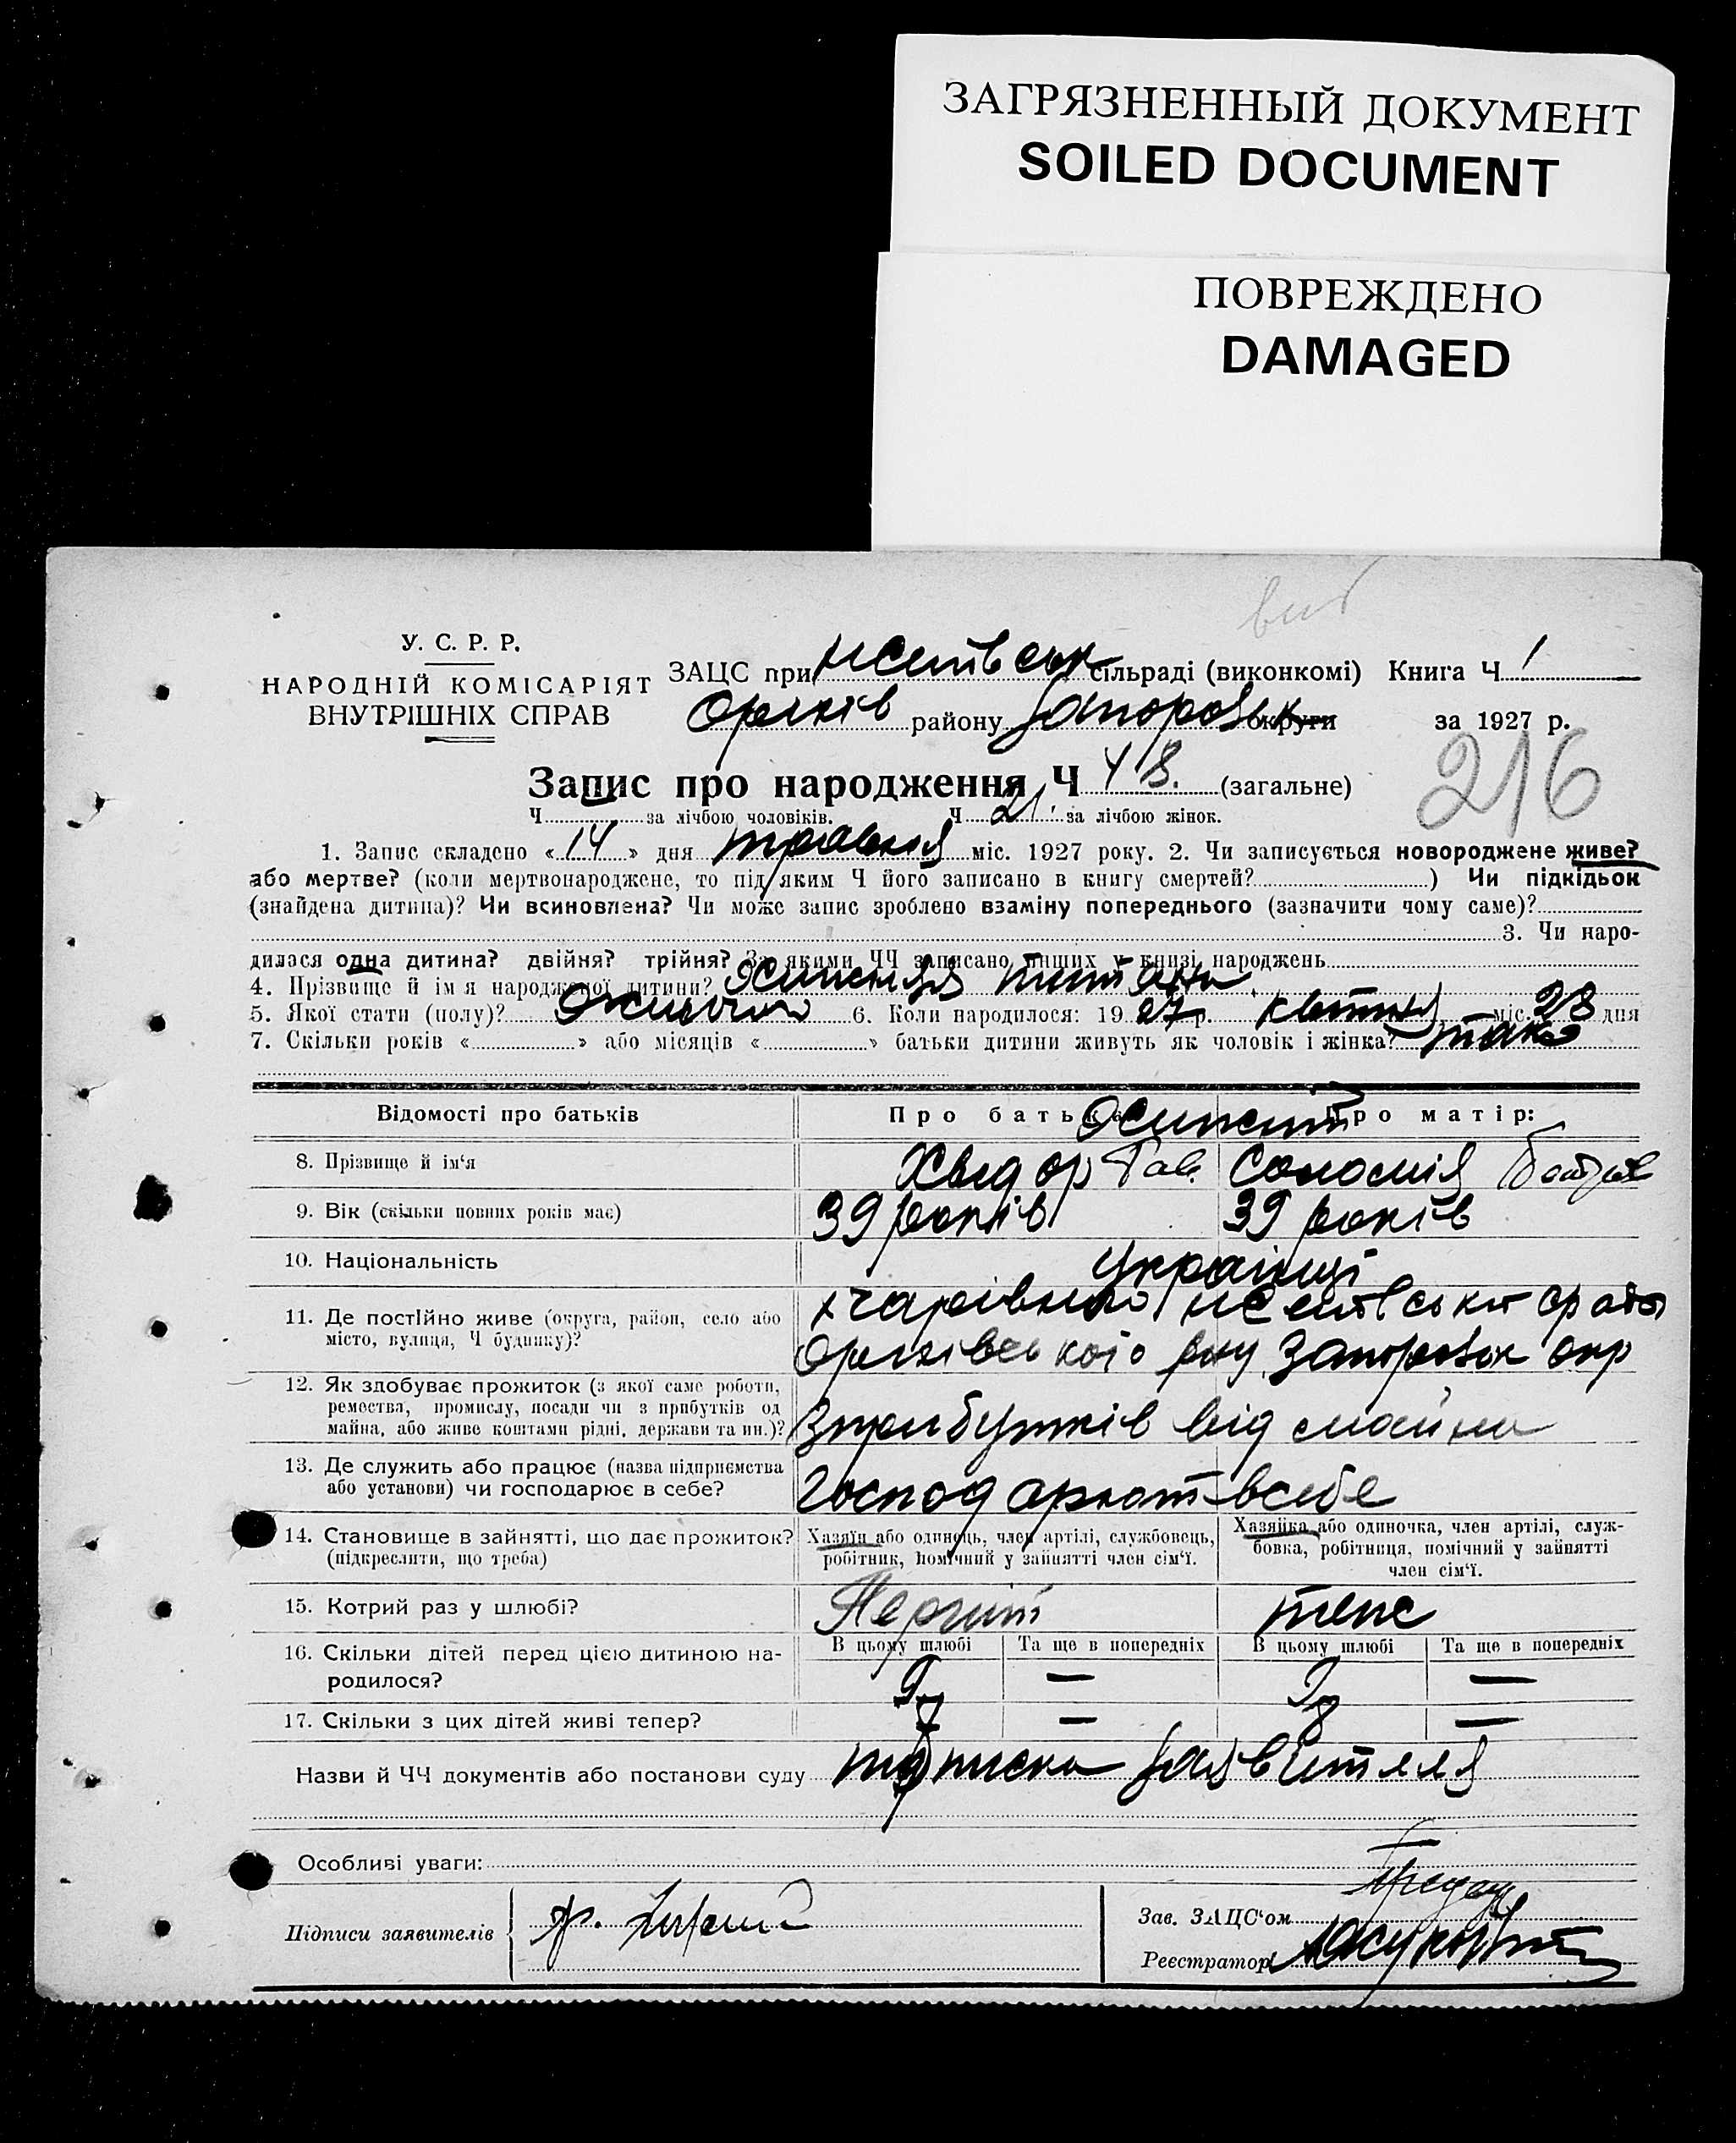 ЗАГРЯЗНЕННЫЙ ДОКУМЕНТ
SOILED DOCUMENT
ПОВРЕЖДЕНО
DAMAGED
У. С. Р. Р.
НАРОДНІЙ КОМІСАРІЯТ
ВНУТРІШНІХ СПРАВ
ЗАЦС при сільраді (виконкомі) Книга Ч 1
Оріхів району Запорозьк округи за 1927 р.
216
Запис про народження Ч 48. (загальне)
Ч за лічбою чоловіків. Ч 21. за лічбою жінок.
1. Запис складено «14» дня травня міс. 1927 року. 2. Чи записується новороджене живе?
або мертве? (коли мертвонароджене, то під яким Ч його записано в книгу смертей? ) Чи підкідьок
(знайдена дитина)? Чи всиновлена? Чи може запис зроблено взаміну попереднього (зазначити чому саме)?
3. Чи наро-
дилася одна дитина? двійня? трійня? За якими ЧЧ записано инших у книзі народжень
4. Прізвище й ім'я народженої дитини?
5. Якої стати (полу)? жіночои 6. Коли народилося: 1927 р. квітня міс. 28 дня
7. Скільки років « » або місяців « » батьки дитини живуть як чоловік і жінка? так
Відомості про батьків
Про батька Про матір:
8. Прізвище й ім'я Хведор Гав. Соломія
9. Вік (скільки повних років має) 39 років 39 років
10. Національність Українці
11. Де постійно живе (округа, район, село або
місто, вулиця, Ч будинку)?
Оріхівського р-ну Запорозьк окр
12. Як здобуває прожиток (з якої саме роботи,
ремества, промислу, посади чи з прибутків од
майна, або живе коштами рідні, держави та ин.)? З прибутків від майна
13. Де служить або працює (назва підприємства
або установи) чи господарює в себе? Господарюют в себе
14. Становище в зайнятті, що дає прожиток?
(підкреслити, що треба)
Хазяїн або одинець, член артілі, службовець,
робітник, помічний у зайнятті член сім'ї.
Хазяйка або одиночка, член артілі, служ-
бовка, робітниця, помічний у зайнятті
член сім'ї.
15. Котрий раз у шлюбі? Перший теж
В цьому шлюбі Та ще в попередніх В цьому шлюбі Та ще в попередніх
16. Скільки дітей перед цією дитиною на-
родилося? — —
17. Скільки з цих дітей живі тепер? — —
Назви й ЧЧ документів або постанови суду підписка заявителя
Особливі уваги:
Підписи заявителів
Зав. ЗАЦС'ом
Реєстратор